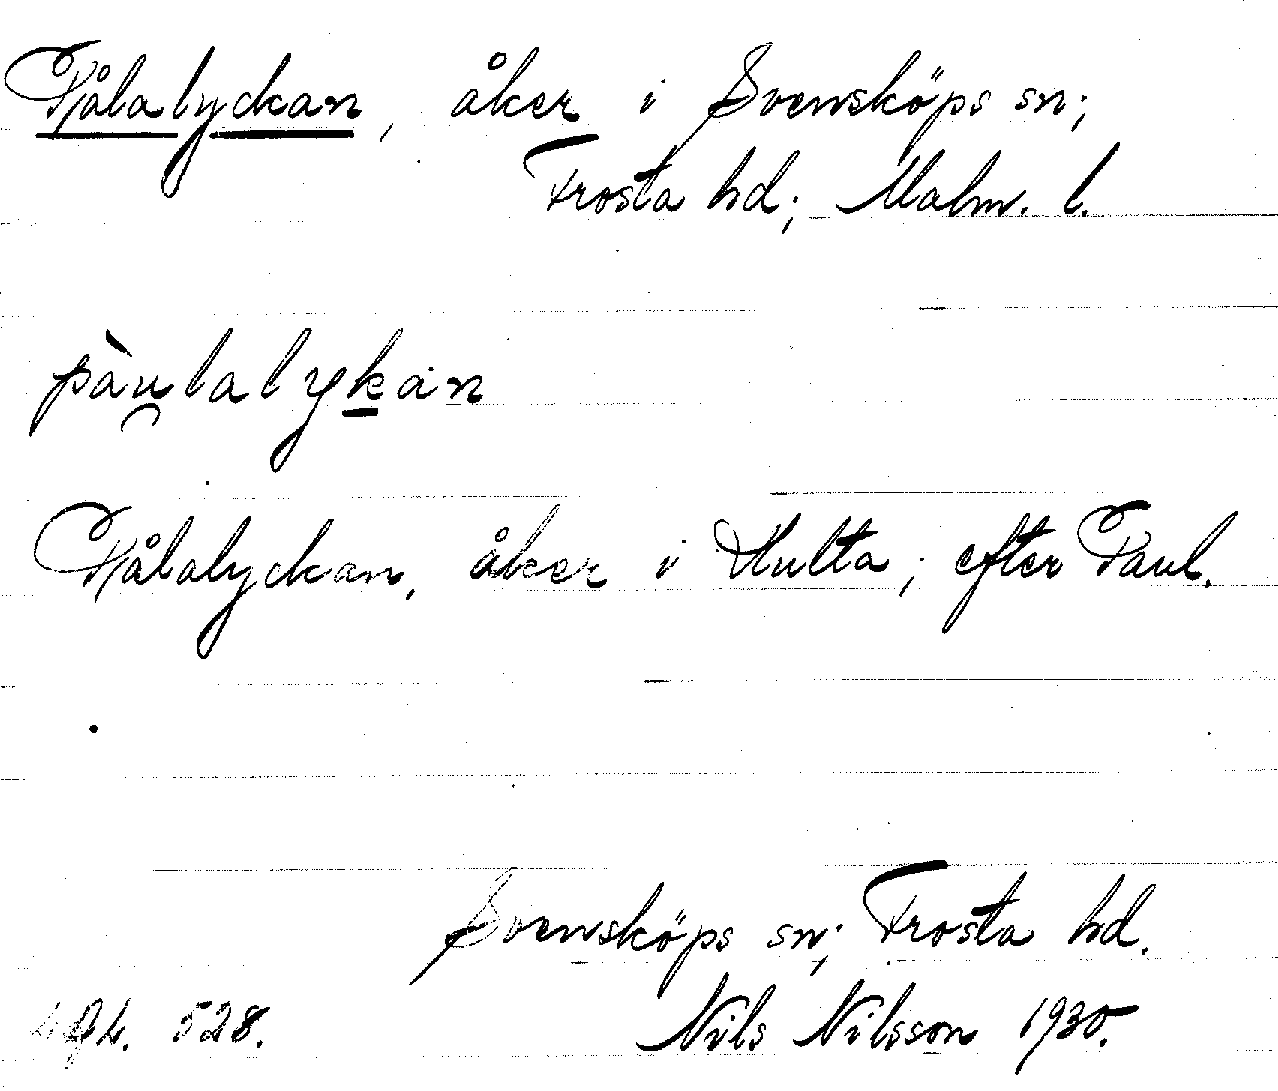 Pålalyckan, åker i Svensköps sn;
Frosta hd; Malm. l.
pàu̯lalyk̲an
Pålalyckan, åker i Hulta; efter Paul.
Svensköps sn; Frosta hd.
528. Nils Nilsson 1930.